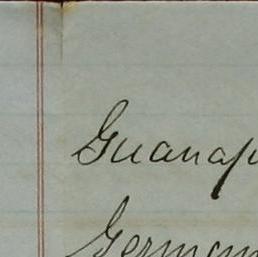 Guanap
German